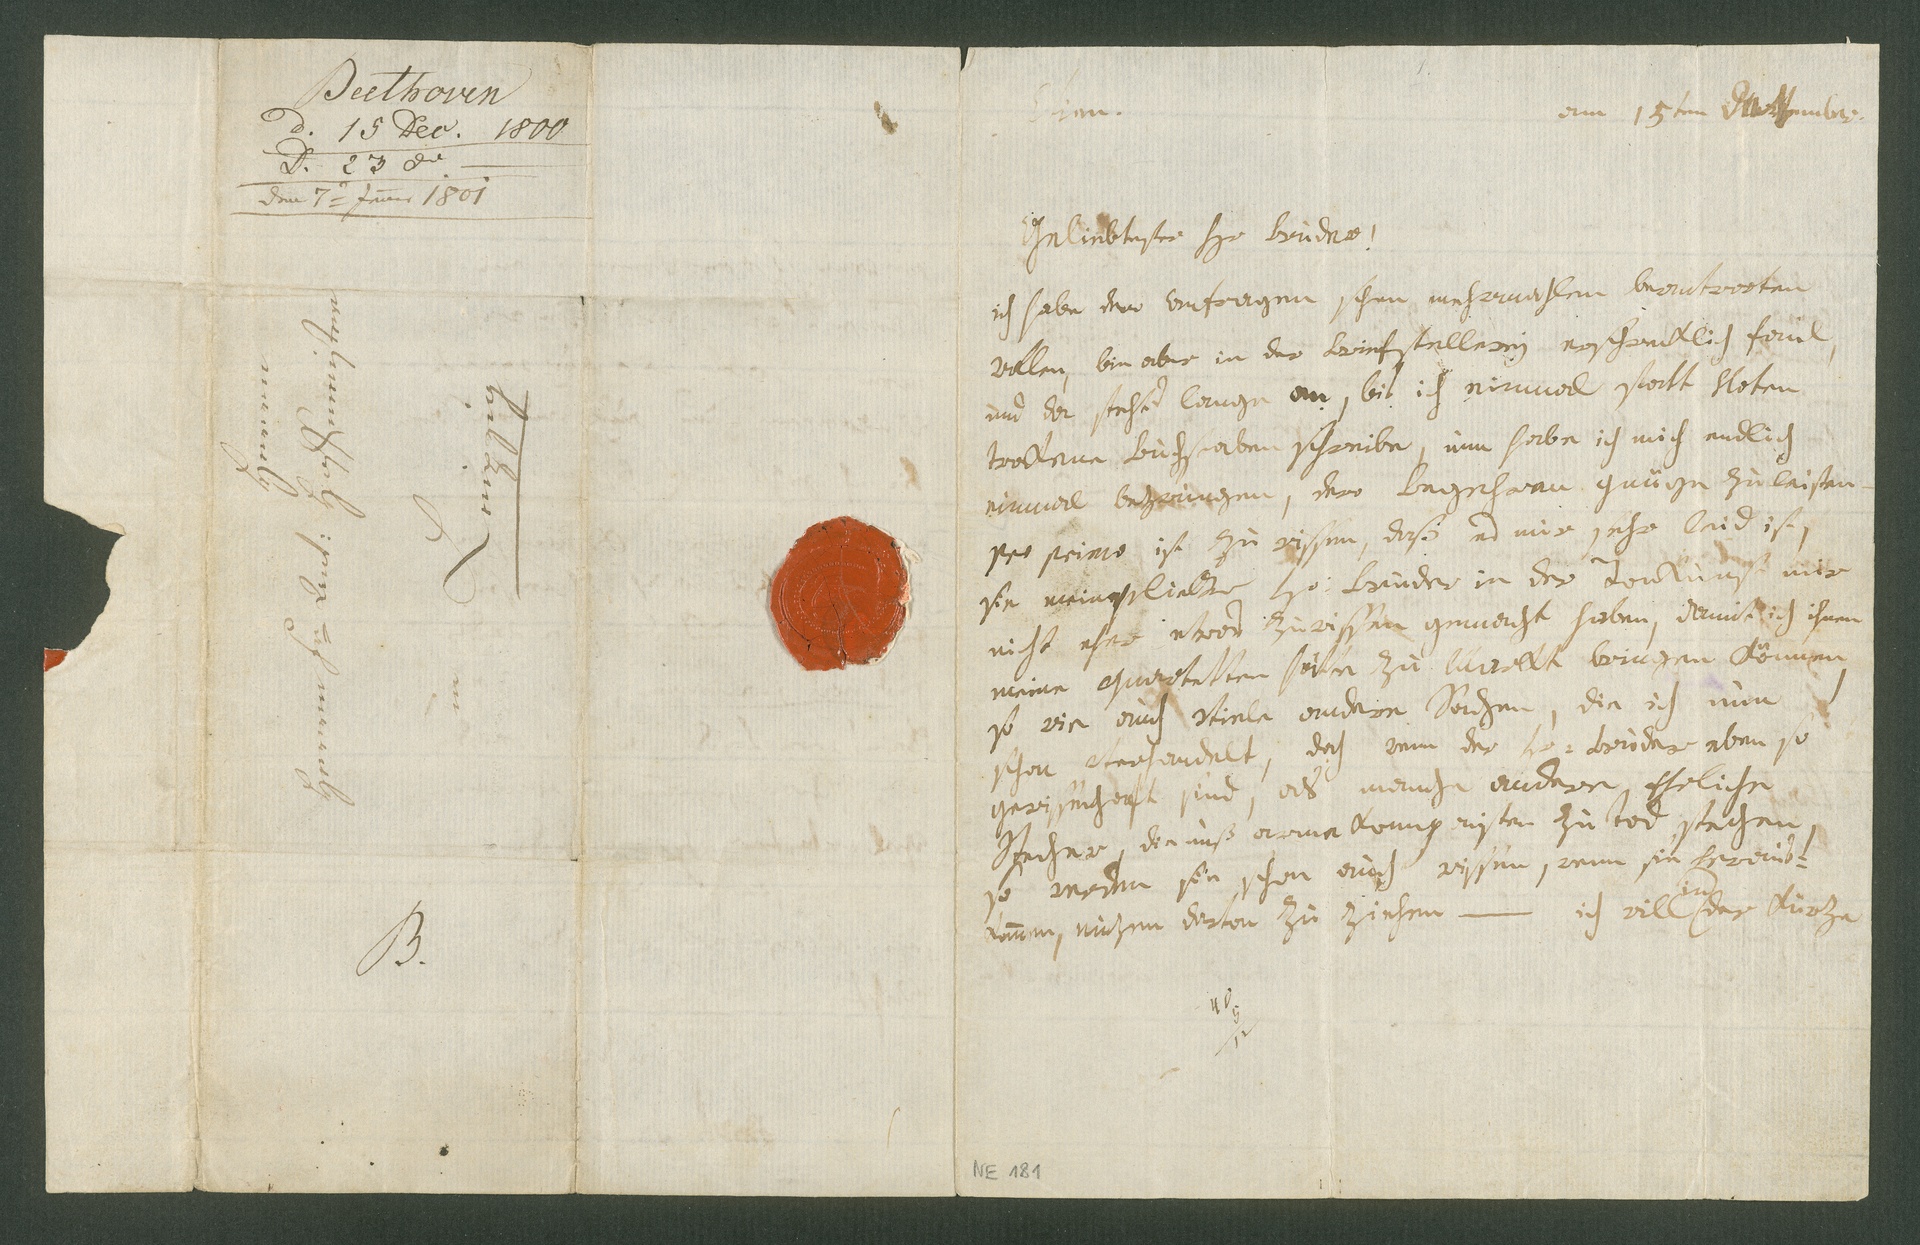 Beethoven
d. 15 Dec. 1800
D. 23 do
den 7= Jenner 1801
B.
Vien.
am 15ten Decemmber.
Geliebtester Hr Bruder!
ich habe dero anfragen schon mehrmahlen beantworten
wollen, bin aber in der briefstellerej erschrecklich faul,
und da stehts lange an, bis ich einmal statt Noten
trockene buchstaben schreibe, nun habe ich mich endlich
einmal bezwungen, dero begehren gnüge zu leisten —
pro primo ist zu wissen, daß es mir sehr leid ist,
sie mein geliebter Hr: bruder in der Tonkunst mir
nicht eher etwas zu wissen gemacht haben, damit ich ihnen
meine quartetten hätte zu Markt bringen können,
so wie auch viele andere Sachen, die ich nun
schon verhandelt, doch wenn der hr: bruder eben so
gewissenhaft sind, als manche andere ehrliche
Stecher, die unß arme komponisten zu tod stechen,
so werden sie schon auch wissen, wenn sie herauß=
kommen, nuzen davon zu ziehen — ich will in der kürze
NE 181